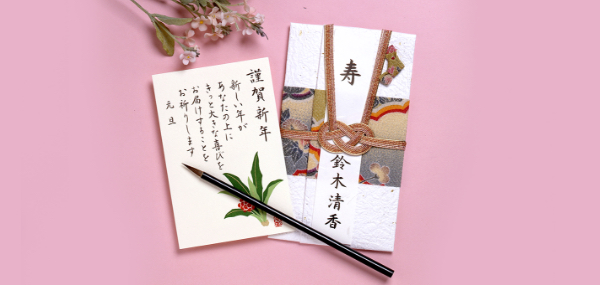 謹賀新年
新しい年が
あなたの上に
きっと大きな喜びを
お届けすることを
お祈りします
元旦
寿
鈴木清香